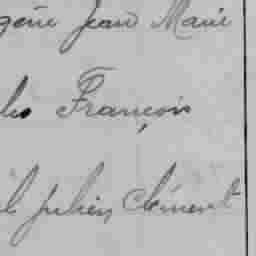 gène Jean Marie
les François
l Julien Clément